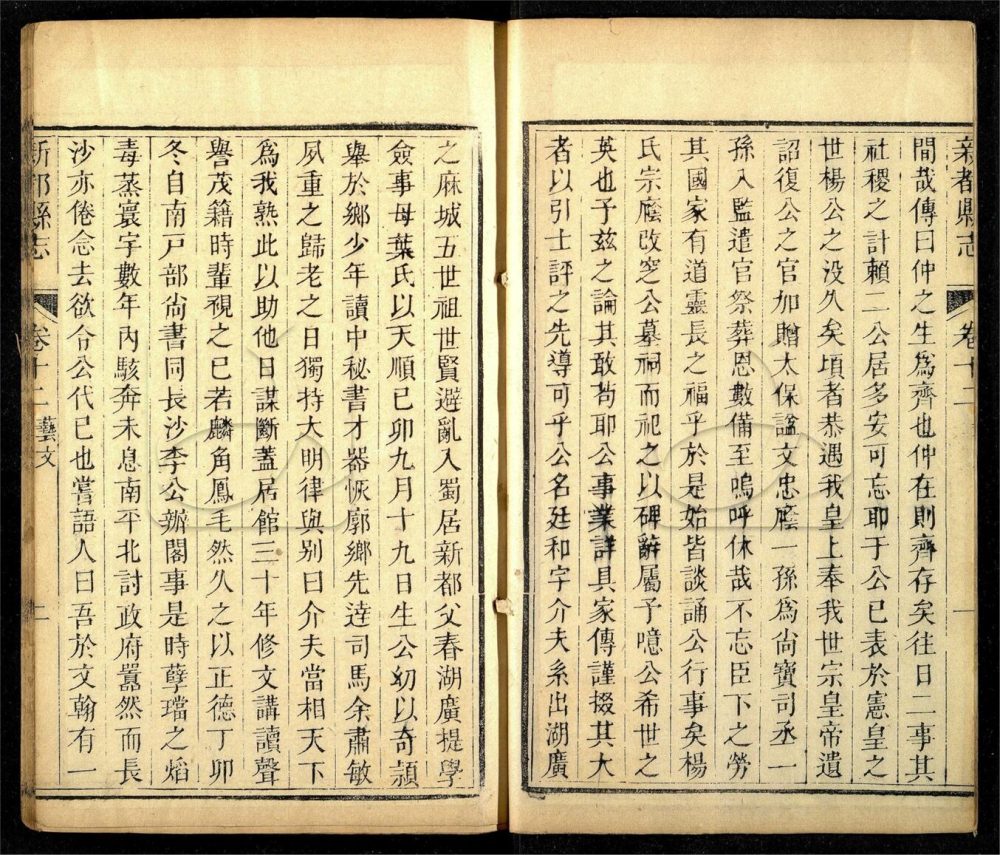 新都縣志
卷十二
一
間哉傳曰仲之生爲齊也仲在則齊存矣往日二事其
社稷之計賴二公居多安可忘耶于公已表於憲皇之
世楊公之没久矣頃者恭遇我皇上奉我世宗皇帝遺
詔復公之官加贈太保謚文忠廕一孫爲尚寶司丞一
孫入監遣官祭葬恩數備至嗚呼休哉不忘臣下之勞
其國家有道靈長之福乎於是始皆談誦公行事矣楊
氏宗廕改窆公墓祠而祀之以碑辭屬予噫公希世之
英也予兹之論其敢苟耶公事業詳具家傳謹掇其大
者以引士評之先導可乎公名廷和字介夫系出湖廣
之麻城五世祖世賢避亂入蜀居新都父春湖廣提學
僉事母葉氏以天順己卯九月十九日生公幼以奇頴
舉於鄉少年讀中秘書才器恢廓鄉先逹司馬余肅敏
夙重之歸老之日獨持大明律與别曰介夫當相天下
爲我熟此以助他日謀斷蓋居館三十年修文講讀聲
譽茂籍時輩視之已若麟角鳳毛然久之以正德丁卯
冬自南戸部尚書同長沙李公辦閣事是時孽璫之焰
毒蒸寰宇數年内駭奔未息南平北討政府囂然而長
沙亦倦念去欲令公代已也嘗語人曰吾於文翰有一
新都縣志
卷十二 藝文
二